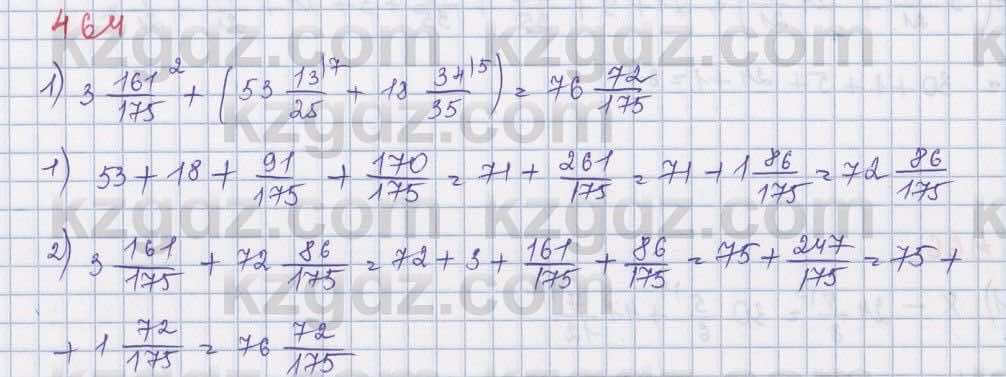 464
1) 3 161/175 ² + (53 13/25 |7 + 18 34/35 |5) = 76 72/175
1) 53 + 18 + 91/175 + 170/175 = 71 + 261/175 = 71 + 1 86/175 = 72 86/175
2) 3 161/175 + 72 86/175 = 72 + 3 + 161/175 + 86/175 = 75 + 247/175 = 75 +
+ 1 72/175 = 76 72/175
kzgdz.com
kzgdz.com
kzgdz.com
kzgdz.com
kzgdz.com
kzgdz.com